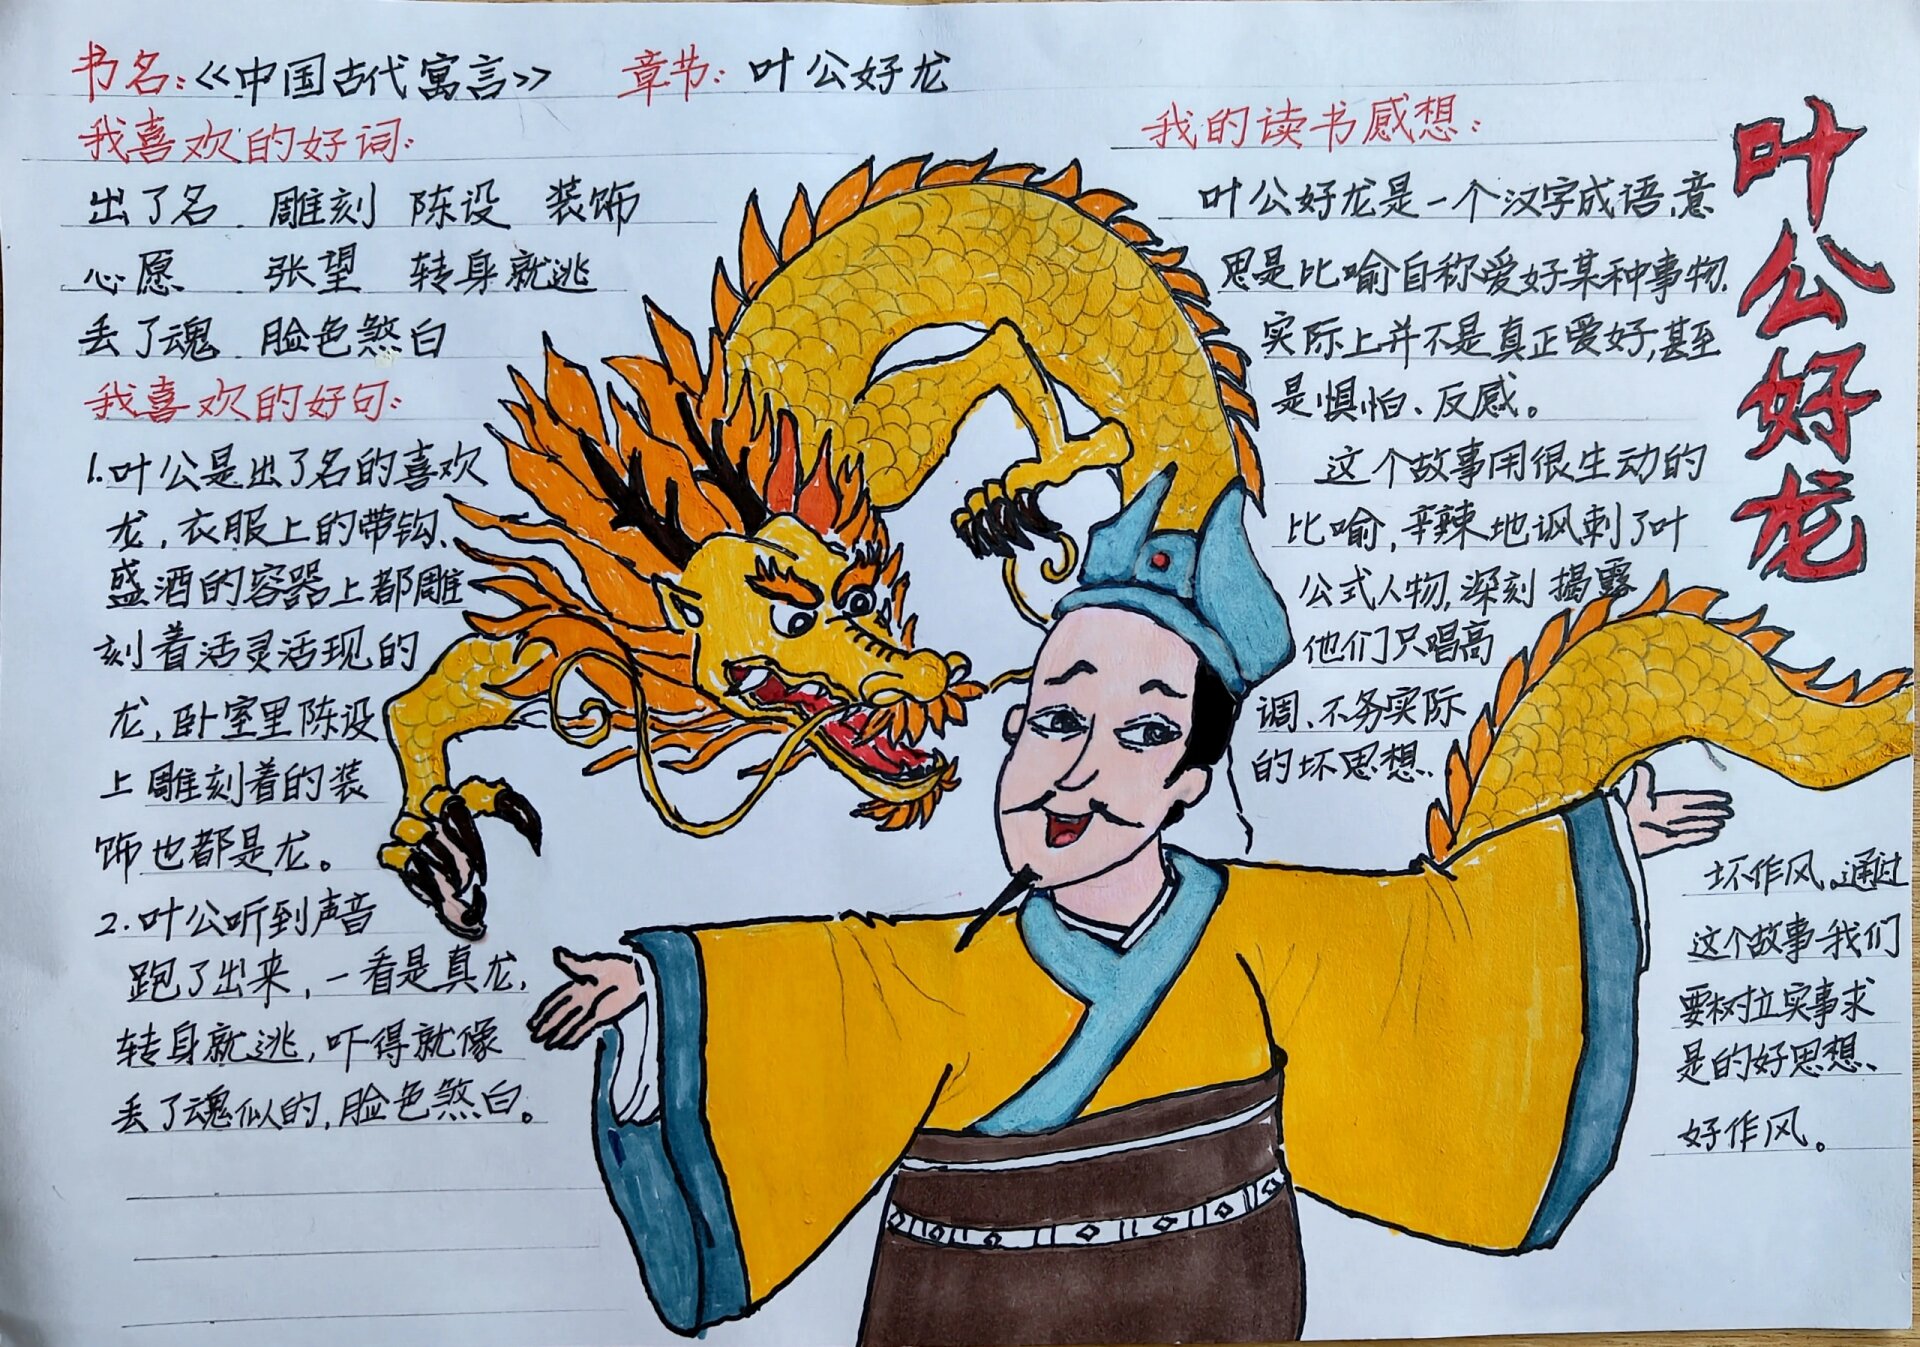 书名:《中国古代寓言》 章节:叶公好龙
我喜欢的好词:
出了名 雕刻 陈设 装饰
心愿 张望 转身就逃
丢了魂 脸色煞白
我喜欢的好句:
1.叶公是出了名的喜欢
龙,衣服上的带钩、
盛酒的容器上都雕
刻着活灵活现的
龙,卧室里陈设
上雕刻着的装
饰也都是龙。
2.叶公听到声音
跑了出来,一看是真龙,
转身就逃,吓得就像
丢了魂似的,脸色煞白。
我的读书感想:
叶公好龙是一个汉字成语,意
思是比喻自称爱好某种事物,
实际上并不是真正爱好,甚至
是惧怕、反感。
这个故事用很生动的
比喻,辛辣地讽刺了叶
公式人物,深刻揭露
他们只唱高
调、不务实际
的坏思想、
坏作风。通过
这个故事我们
要树立实事求
是的好思想、
好作风。
叶公好龙